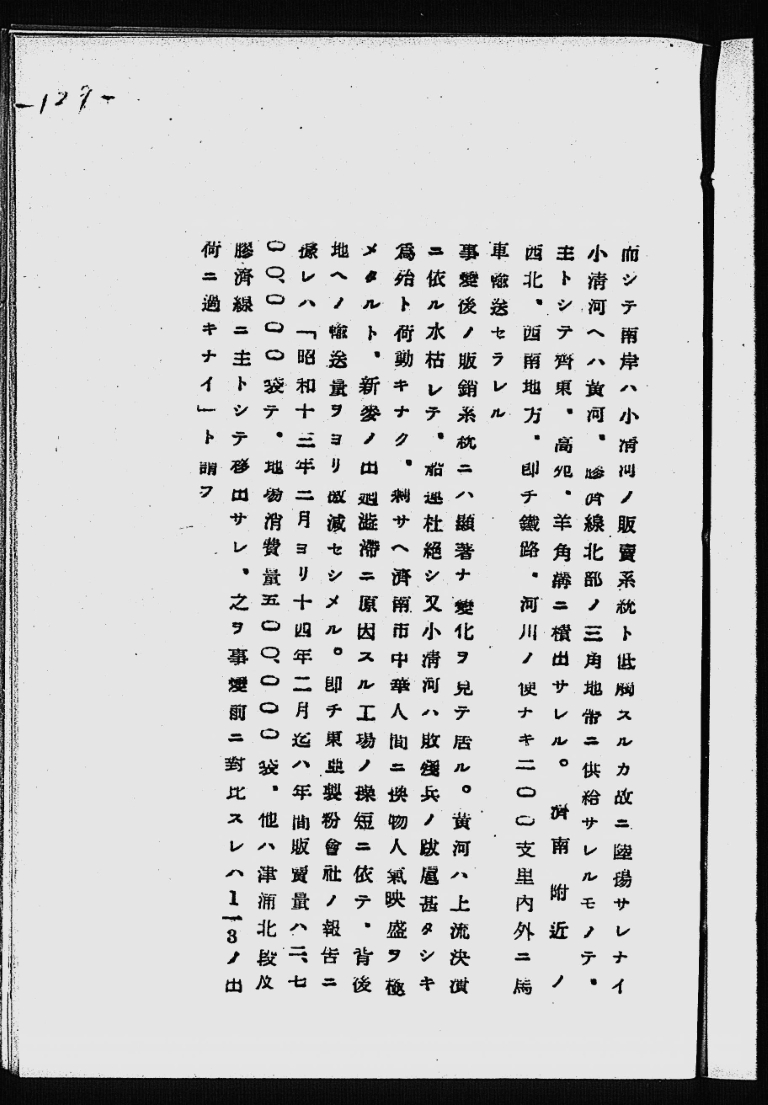 -127-
而シテ兩岸ハ小淸河ノ販賣系統ト低觸スルカ故ニ陸揚サレナイ
小淸河ヘハ黃河、膠濟線北部ノ三角地帶ニ供給サレルモノテ、
主トシテ齊東、高苑、羊角溝ニ積出サレル。濟南附近ノ
西北、西南地方、卽チ鐵路、河川ノ便ナキ二〇〇支里內外ニ馬
車輸送セラレル
事變後ノ販銷系統ニハ顯著ナ變化ヲ見テ居ル。黃河ハ上流決潰
ニ依ル水枯レテ、船運杜絕シ又小淸河ハ敗殘兵ノ跋扈甚タシキ
爲殆ト荷動キナク、剩サヘ濟南市中華人間ニ換物人氣映盛ヲ極
メタルト、新麥ノ出廻澁滯ニ原因スル工場ノ操短ニ依テ、背後
地ヘノ輸送量ヲヨリ激減セシメル。卽チ東亞製粉會社ノ報告ニ
據レハ「昭和十三年二月ヨリ十四年二月迄ハ年間販賣量ハ二、七
〇〇、〇〇〇袋テ、地場消費量五〇〇、〇〇〇袋、他ハ津浦北段及
膠濟線ニ主トシテ移出サレ、之ヲ事變前ニ對比スレハ1/3ノ出
荷ニ過キナイ」ト謂フ